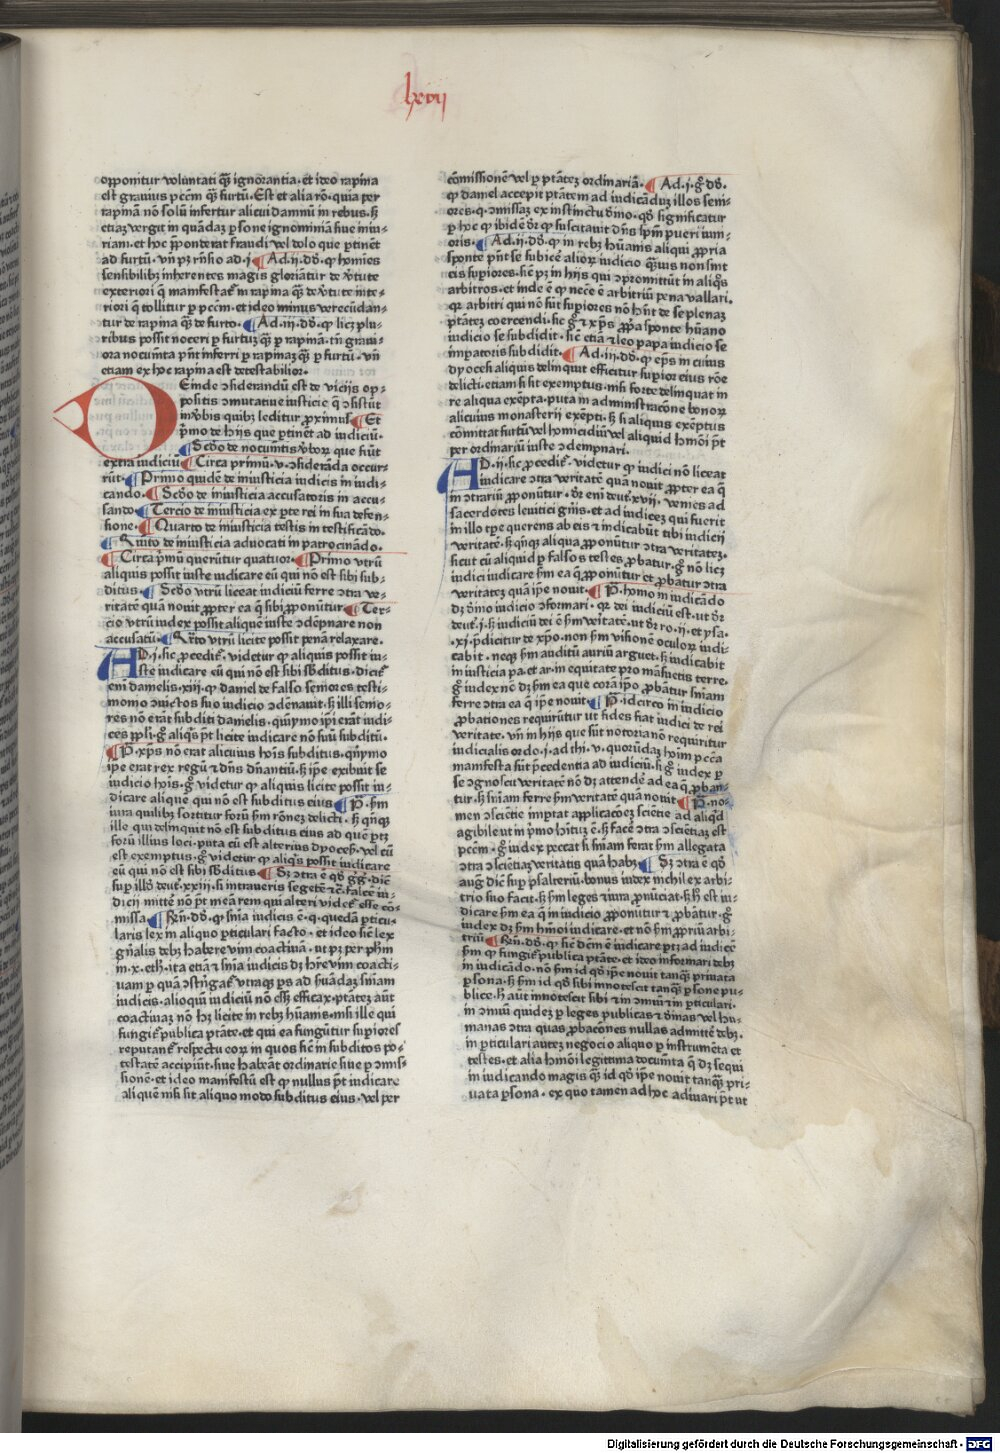 lxvij
opponitur voluntati qȝ ignorantia · et ideo rapina
est grauius pctm̄ qȝ furtū · Est et alia rō · quia per
rapinā nō solū infertur alicui damnū in rebus · sȝ
etiaȝ vergit in quādaȝ ꝑsone ignominiā siue iniu-
riam · et hoc p̄ponderat fraudi vel dolo que ꝑtinēt
ad furtū · vn̄ pȝ rn̄sio ad · j · Ad · ij · dō · ꝙ homīes
sensibilibȝ inherentes magis gloriātur de v̄tute
exteriori q̄ manifestat᷑ in rapina qȝ de v̄tute inte-
riori q̄ tollitur ꝑ pctm̄ · et ideo minus verecūdan-
tur de rapina qȝ de furto · Ad · iij · dō · ꝙ licȝ plu-
ribus possit noceri ꝑ furtuȝ qȝ ꝑ rapinā · tn̄ graui-
ora nocumta pn̄t inferri ꝑ rapinaȝ qȝ ꝑ furtū · vn̄
etiam ex hoc rapina est detestabilior ·
DEinde ↄsiderandū est de vicijs op-
positis ↄmutatiue iusticie q̄ ↄsistūt
in v̄bis quibȝ leditur ꝓximus Et
p̄mo de hijs que ꝑtinēt ad iudiciū ·
Scd̄o de nocumtis v̄boꝝ que fiūt
extra iudiciū Circa primū · v · ↄsiderāda occur-
rūt · Primo quidē de iniusticia iudicis in iudi-
cando · Scd̄o de iniusticia accusatoris in accu-
sando Tercio de iniusticia ex ꝑte rei in sua defen-
sione · Quarto de iniusticia testis in testificādo ·
Quīto de iniusticia aduocati in patrocinādo ·
Circa p̄mū querūtur quatuor · Primo vtrū
aliquis possit iuste iudicare eū qui nō est sibi sub-
ditus · Scd̄o vtrū liceat iudiciū ferre ↄtra ve-
ritatē quā nouit ꝓpter ea q̄ sibi ꝓponūtur Ter-
cio vtrū iudex possit aliquē iuste ↄdēpnare non
accusatū · Qrto vtrū licite possit penā relaxare ·
AD · j · sic ꝓcedit᷑ · videtur ꝙ aliquis possit iu-
ste iudicare eū qui nō est sibi sb̄ditus · dicit᷑
em̄ danielis · xiij · ꝙ daniel de falso seniores testi-
monio ↄuictos suo iudicio ↄdēnauit · sȝ illi senio-
res nō erāt subditi danielis · quīymo ip̄i erāt iudi-
ces pp̄li · g̊ aliqs p̄t licite iudicare nō suū subditū ·
P̄ · xp̄s nō erat alicuius hoīs subditus · quīymo
ip̄e erat rex regū ⁊ dn̄s dn̄antiū · sȝ ip̄e exibuit se
iudicio hoīs · g̊ videtur ꝙ aliquis licite possit iu-
dicare aliquē qui nō est subditus eius P̄ · sm̄
iura quilibȝ sortitur forū sm̄ rōneȝ delicti · sȝ qn̄qȝ
ille qui delinquit nō est subditus eius ad quē ꝑtȝ
forū illius loci · puta cū est alterius dyoceȝ · vel cū
est exemptus · g̊ videtur ꝙ aliqs possit iudicare
eū qui nō est sibi sb̄ditus Sȝ ↄtra ē qd̄ g̊g · dic̄
sup̱ illd̄ deut᷑ · xxiij · si intraueris segetē ⁊c̄ · falcē iu-
dicij mittē nō pt̄ mea rem qui alteri videt᷑ esse cō-
missa Rn̄ · dō · ꝙ sn̄ia iudicis ē · q · quedā ꝑticu-
laris lex in aliquo ꝑticulari facto · et ideo sic̄ lex
gn̄alis debȝ habere vim coactiuā · vt pȝ per ph̄m
in · x · eth · ita etiā ⁊ sn̄ia iudicis dȝ hr̄e vim coacti-
uam ꝑ quā ↄstrīgat᷑ vtraqȝ ps̄ ad suādaȝ sn̄iam
iudicis · alioquin iudiciū nō ess̄ efficax · ptātez aūt
coactiuaȝ nō hȝ licite in rebȝ hūanis · nisi ille qui
fungit᷑ publica ptāte · et qui ea fungūtur suꝑiores
reputant᷑ respectu eoꝝ in quos sic̄ in subditos po-
testatē accipiūt · siue habeāt ordinarie siue ꝑ ↄmis-
sionē · et ideo manifestū est ꝙ nullus p̄t iudicare
aliquē nisi sit aliquo modo subditus eius · vel per
cōmissionē vel ꝑ ptātez ordinariā · Ad · j · g̊ dō ·
ꝙ daniel accepit ptātem ad iudicāduȝ illos seni-
ores · q · ↄmissaȝ ex instinctu diuīo · qd̄ significatur
ꝑ hoc ꝙ ibidē dr̄ ꝙ suscitauit dn̄s sp̄m pueri iuni-
oris · Ad · ij · dō · ꝙ in rebȝ hūanis aliqui ꝓpria
sponte pn̄t se subicē alioꝝ iudicio quīuis non sint
eis suꝑiores · sic̄ pȝ in hijs qui ↄpromittūt in aliqs
arbitros · et inde ē ꝙ necē ē arbitriū pena vallari ·
qꝛ arbitri qui nō sūt suꝑiores nō hn̄t de se plenaȝ
ptātez coercendi · sic̄ g̊ ⁊ xp̄s ꝓpa sponte hūano
iudicio se subdidit · sic̄ etiā ⁊ leo papa iudicio se
imꝑatoris subdidit · Ad · iij · dō · ꝙ ep̄s in cuius
dyocesi aliquis delinquit efficitur suꝑior eius rōe
delicti · etiam si sit exemptus · nisi forte delinquat in
re aliqua exēpta · puta in administracōne bonoꝝ
alicuius monasterij exēpti · sȝ si aliquis exēptus
cōmittat furtū vel homicidiū vel aliquid hmōi p̄t
per ordinariū iuste ↄdempnari ·
AD · ij · sic ꝓcedit᷑ · videtur ꝙ iudici nō liceat
iudicare ↄtra veritatē quā nouit ꝓpter ea q̄
in ↄtrariū ꝓponūtur · dr̄ eni deut᷑ · xvij · venies ad
sacerdotes leuitici gn̄is · et ad iudicez qui fuerit
in illo tp̄e querens ab eis ⁊ indicabūt tibi iudicij
veritatē · sȝ qn̄qȝ aliqua ꝓponūtur ↄtra veritateȝ ·
sicut cū aliquid ꝑ falsos testes ꝓbatur · g̊ nō licȝ
iudici iudicare sm̄ ea q̄ ꝓponūtur et ꝓbatur ↄtra
veritateȝ quā ip̄e nouit · P̄ · homo in iudicādo
dȝ diuīo iudicio ↄformari · qꝛ dei iudiciū est · vt dr̄
deut᷑ · j · sȝ iudiciū dei ē sm̄ veritatē · vt dr̄ ro · ij · et ysa ·
· xj · p̄dicitur de xp̄o · non sm̄ visionē oculoꝝ iudi-
cabit · neqȝ sm̄ auditū auriū arguet · sȝ iudicabit
in iusticia pa · et ar · in equitate pro māsuetis terre ·
g̊ iudex nō dȝ sm̄ ea que corā ip̄o ꝓbātur sn̄iam
ferre ↄtra ea q̄ ip̄e nouit · P̄ · idcirco in iudicio
ꝓbationes requirūtur vt fides fiat iudici de rei
veritate · vn̄ in hijs que sūt notoria nō requiritur
iudicialis ordo · j · ad thi · v · quorūdaȝ hoīm pctā
manifesta sūt p̄cedentia ad iudiciū · si g̊ iudex ꝑ
se ↄgnoscit veritatē nō dȝ attendē ad ea q̄ ꝓban-
tur · sȝ sn̄iam ferre sm̄ veritatē quā nouit P̄ · no-
men ↄscientie imꝑtat applicacōeȝ scientie ad aliqd̄
agibile vt in p̄mo hītuȝ ē · sȝ facē ↄtra ↄscientiaȝ est
pctm̄ · g̊ iudex peccat si sn̄iam ferat sm̄ allegata
ↄtra ↄscientiaȝ veritatis quā habȝ Sȝ ↄtra ē qd̄
aug̊ dic̄ suꝑ psalteriū · bonus iudex nichil ex arbi-
trio suo facit · sȝ sm̄ leges ⁊ iura ꝓnūciat · sȝ h̊ est iu-
dicare sm̄ ea q̄ in iudicio ꝓponūtur ⁊ ꝓbātur · g̊
iudex dȝ sm̄ hmōi iudicare · et nō sm̄ ꝓpriū arbi-
triū Rn̄ · dō · ꝙ sic̄ dcm̄ ē iudicare ptȝ ad iudicē
sm̄ ꝙ fungit᷑ publica ptāte · et ideo informari debȝ
in iudicādo · nō sm̄ id qd̄ ip̄e nouit tanqȝ priuata
ꝑsona · sȝ sm̄ id qd̄ sibi innotescit tanqȝ ꝑsone pu-
blice · h̊ aūt innotescit sibi ⁊ in ↄmuni ⁊ in ꝑticulari ·
in ↄmūi quideȝ ꝑ leges publicas ⁊ diuīas vel hu-
manas ↄtra quas ꝓbacōnes nullas admittē debȝ ·
in ꝑticulari auteȝ negocio aliquo ꝑ instrumēta et
testes · et alia hmōi legittima documta q̄ dȝ sequi
in iudicando magis qȝ id qd̄ ip̄e nouit tanqȝ pri-
uata ꝑsona · ex quo tamen ad hoc adiuuari p̄t vt
Digitalisierung gefördert durch die Deutsche Forschungsgemeinschaft - DFG